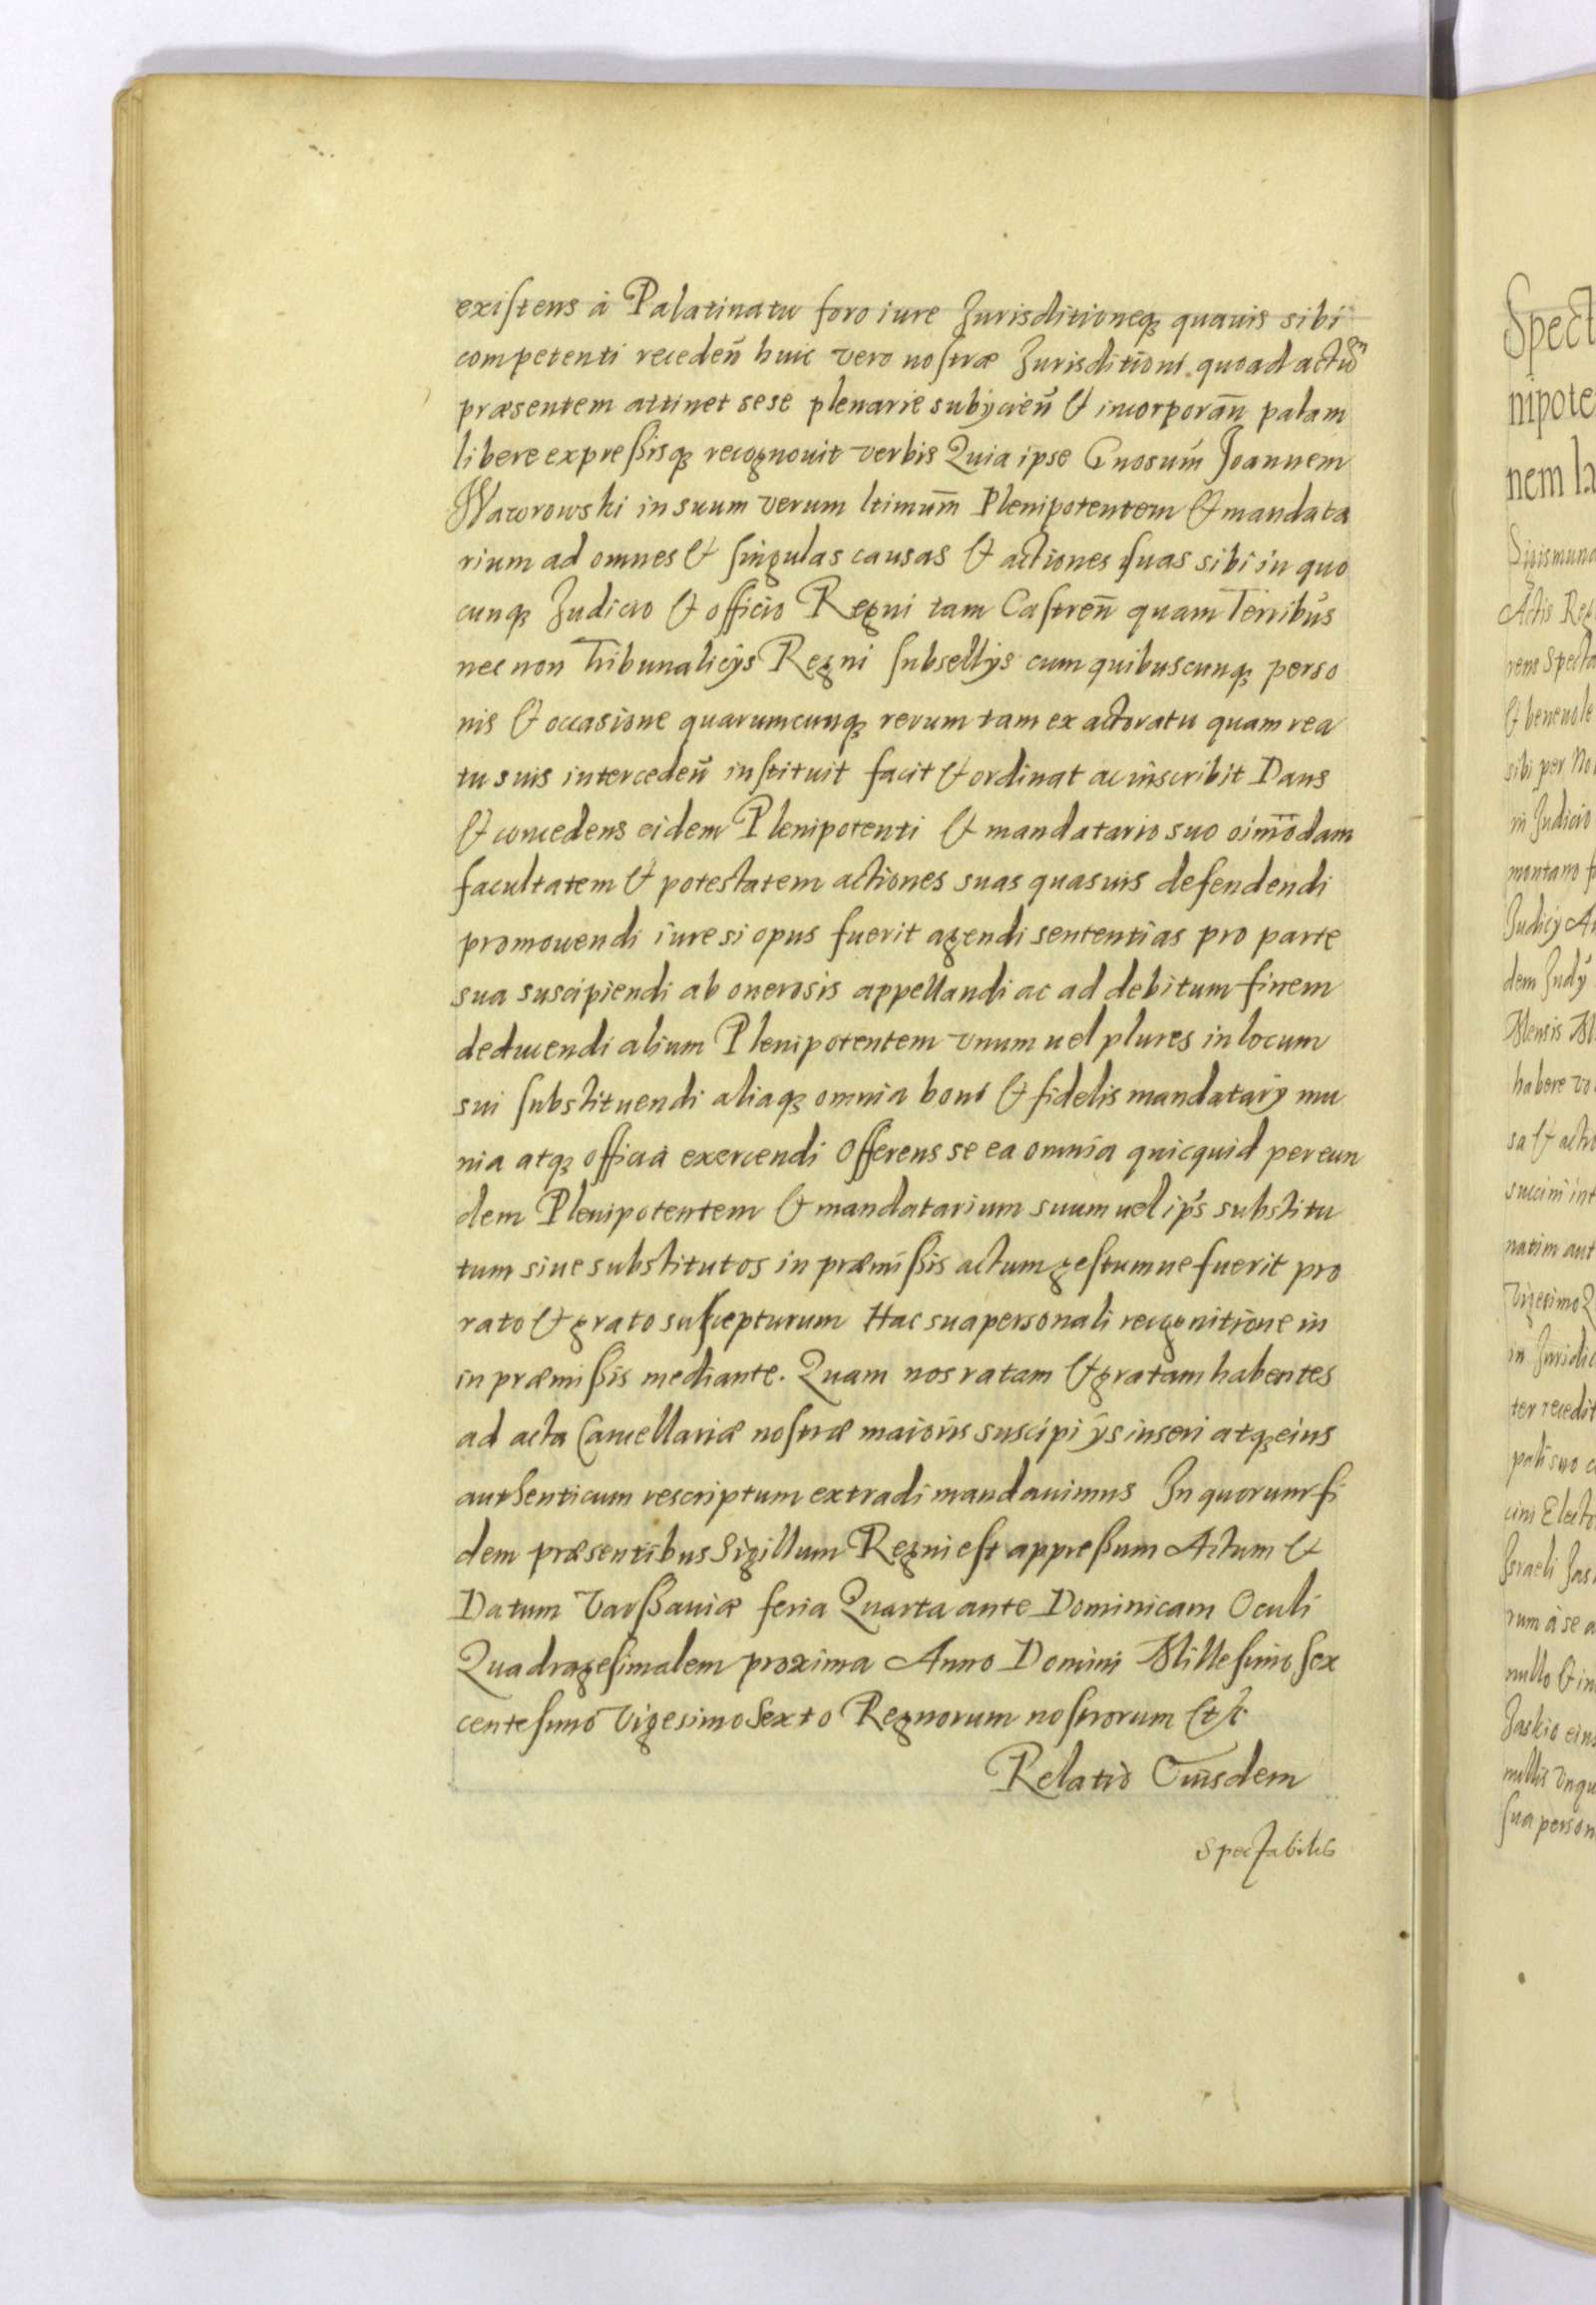 existens à Palatinatu foro iure Jurisditioneq₃ quauis sibi
competenti receden̄ huic vero nostræ Jurisditioni quoad actum
præsentem attinet sese plenarie subijcien̄ & incorporan̄ palam
libere expressisq₃ recognouit verbis Quia ipse Gnosum̄ Joannem
Waworowski in suum verum ltimum̄ Plenipotentem & mandata
rium ad omnes & singulas causas & actiones suas sibi in quo
cunq₃ Judicio & officio Regni tam Castren̄ quam Terribus
nec non Tribunalicijs Regni subsellijs cum quibuscunq₃ perso
nis & occasione quarumcunq₃ rerum tam ex actoratu quam rea
tu suis interceden̄ instituit facit & ordinat ac inscribit Dans
& concedens eidem Plenipotenti & mandatario suo oim̄odam
facultatem & potestatem actiones suas quasuis defendendi
promouendi iure si opus fuerit agendi sententias pro parte
sua suscipiendi ab onerosis appellandi ac ad debitum finem
deducendi alium Plenipotentem vnum uel plures in locum
sui substituendi aliaq₃ omnia boni & fidelis mandatarij mu
nia atq₃ officia exercendi Offerens se ea omnia quicquid per eun
dem Plenipotentem & mandatarium suum uel ip̄s substitu
tum siue substitutos in præmissis actum gestumue fuerit pro
rato & grato suscepturum Hac sua personali recognitione in
in præmissis mediante. Quam nos ratam & gratam habentes
ad acta Cancellariæ nostræ maioris suscipi ijs inseri atq₃ eius
authenticum rescriptum extradi mandauimus In quorum fi
dem præsentibus Sigillum Regni est appressum Actum &
Datum Varssauiæ feria Quarta ante Dominicam Oculi
Quadragesimalem proxima Anno Domini Millesimo sex
centesimo Vigesimo Sexto Regnorum nostrorum &c
Relatio Eiusdem
Spectabilis
Spect
nipote
nem
Sigismund
Actis Reg
rens Specta
& beneuole
sibi per No
in Judicio
montano
Judicij
dem Judij
habere
sa & actio
natim aut
Vigesimo
in Juridic
ter recedit
Israeli Jas
rum à se a
nullo & in
Jaskio eius
nullis vnqu
sua person